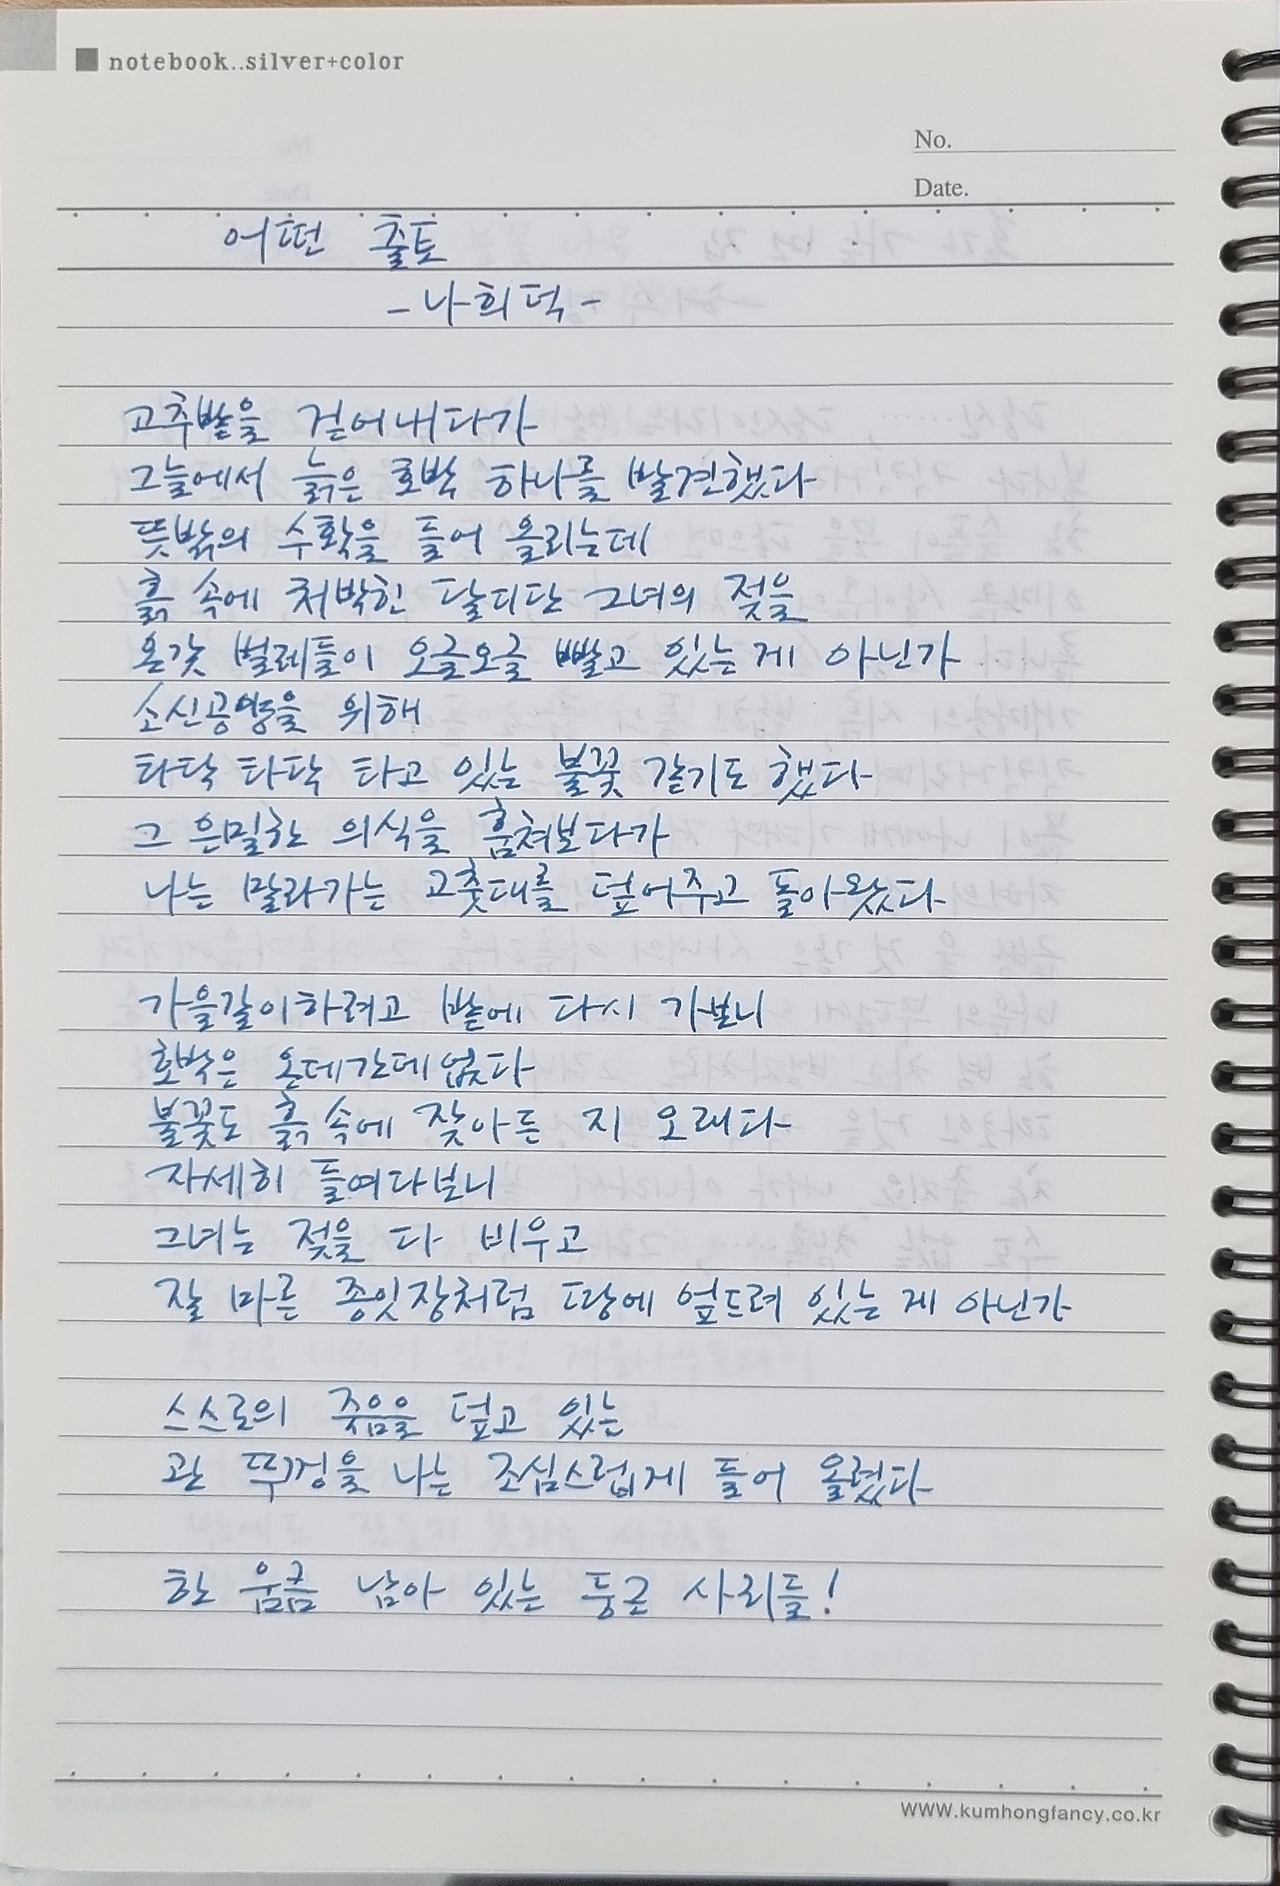 notebook..silver+color
No.
Date.
어떤 출토
-나희덕-
고추밭을 걷어내다가
그늘에서 늙은 호박 하나를 발견했다
뜻밖의 수확을 들어 올리는데
흙 속에 처박힌 달디단 그녀의 젖을
온갖 벌레들이 오글오글 빨고 있는 게 아닌가
소신공양을 위해
타닥타닥 타고 있는 불꽃 같기도 했다
그 은밀한 의식을 훔쳐보다가
나는 말라가는 고춧대를 덮어주고 돌아왔다
가을갈이하려고 밭에 다시 가보니
호박은 온데간데없다
불꽃도 흙 속에 잦아든 지 오래다
자세히 들여다보니
그녀는 젖을 다 비우고
잘 마른 종잇장처럼 땅에 엎드려 있는 게 아닌가
스스로의 죽음을 덮고 있는
관 뚜껑을 나는 조심스럽게 들어 올렸다
한 움큼 남아 있는 둥근 사리들!
WWW.kumhongfancy.co.kr